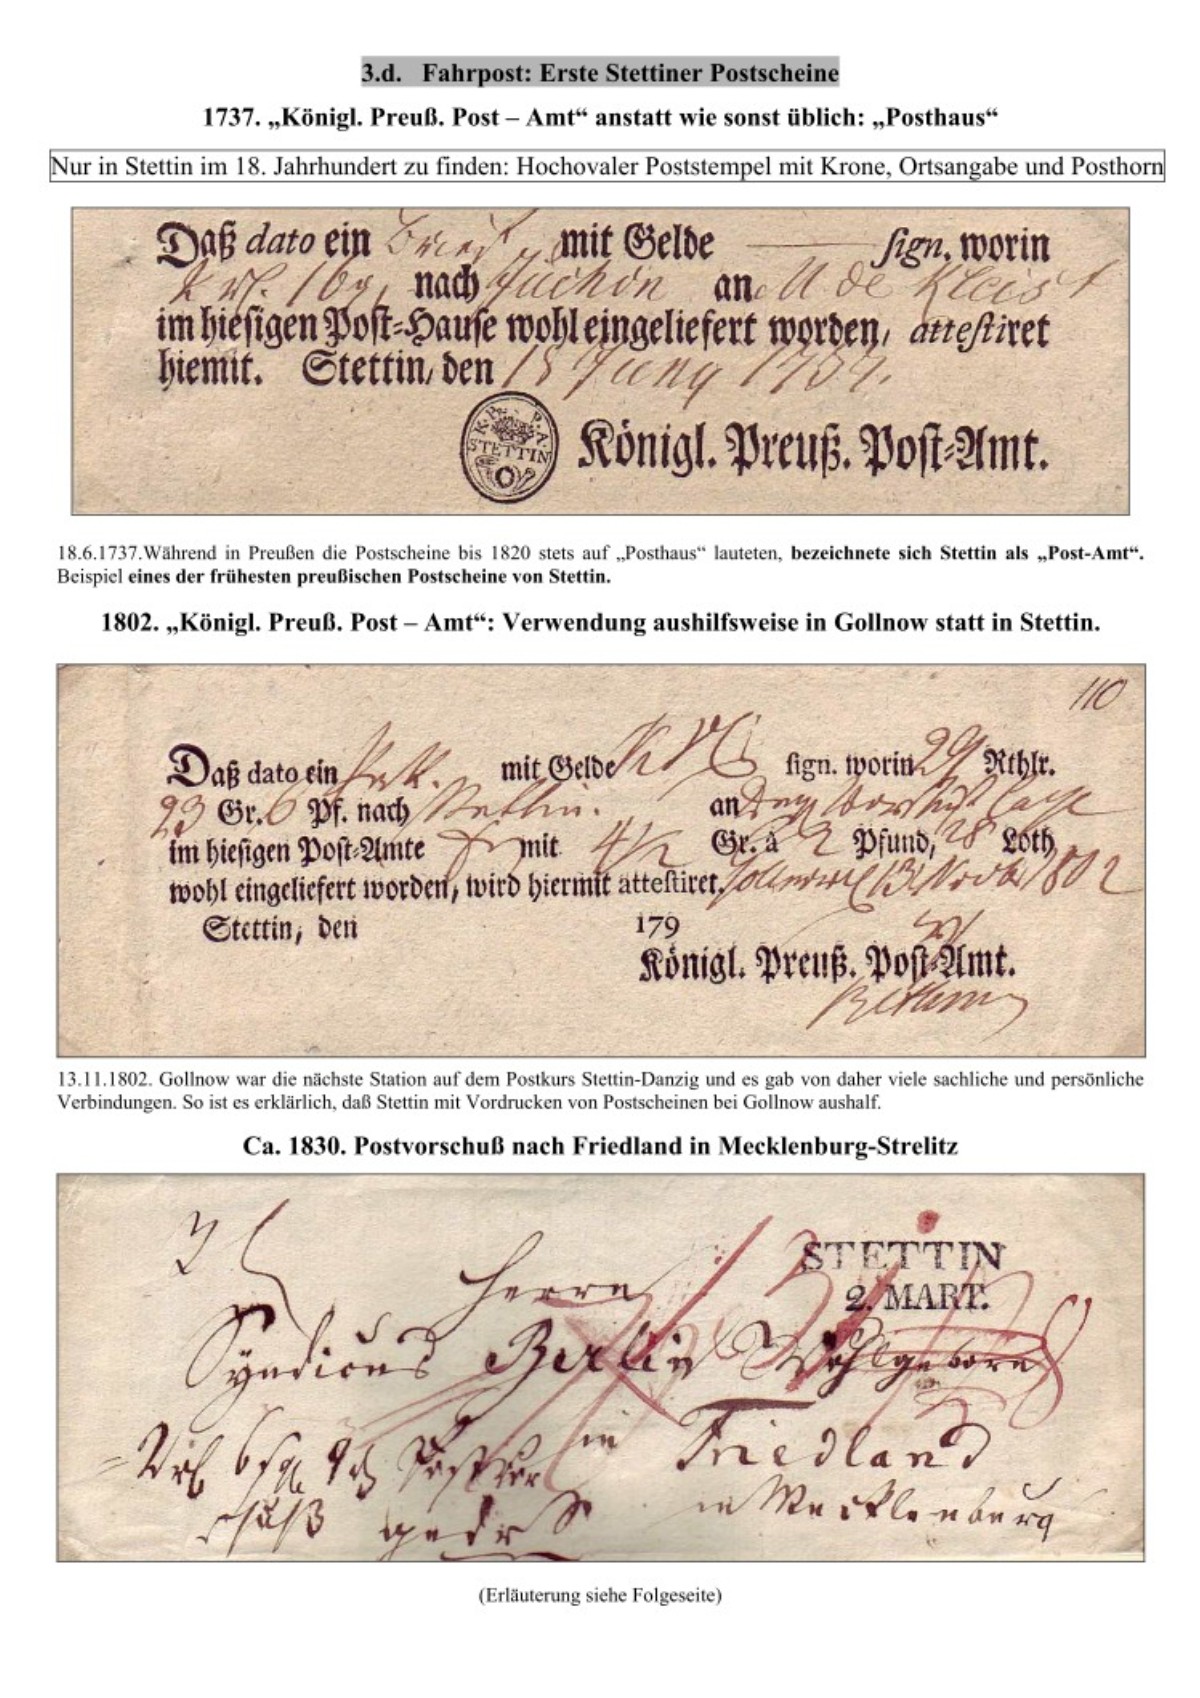 3.d. Fahrpost: Erste Stettiner Postscheine
1737. „Königl. Preuß. Post – Amt“ anstatt wie sonst üblich: „Posthaus“
Nur in Stettin im 18. Jahrhundert zu finden: Hochovaler Poststempel mit Krone, Ortsangabe und Posthorn
Daß dato ein Brief mit Gelde sign. worin
nach an de Kleist
im hiesigen Post-Hause wohl eingeliefert worden, attestiret
hiemit. Stettin, den 18 Juny 1737.
K. P. P. A.
STETTIN
Königl. Preuß. Post-Amt.
18.6.1737.Während in Preußen die Postscheine bis 1820 stets auf „Posthaus“ lauteten, bezeichnete sich Stettin als „Post-Amt“.
Beispiel eines der frühesten preußischen Postscheine von Stettin.
1802. „Königl. Preuß. Post – Amt“: Verwendung aushilfsweise in Gollnow statt in Stettin.
110
Daß dato ein mit Gelde sign. worin 29 Rthlr.
23 Gr. 6 Pf. nach Stettin. an
im hiesigen Post-Amte mit 4½ Gr. à 2 Pfund, 28 Loth
wohl eingeliefert worden, wird hiermit attestiret. Gollnow 13 Novbr 1802
Stettin, den 179
Königl. Preuß. Post-Amt.
13.11.1802. Gollnow war die nächste Station auf dem Postkurs Stettin-Danzig und es gab von daher viele sachliche und persönliche
Verbindungen. So ist es erklärlich, daß Stettin mit Vordrucken von Postscheinen bei Gollnow aushalf.
Ca. 1830. Postvorschuß nach Friedland in Mecklenburg-Strelitz
STETTIN
2. MART.
Herrn
Syndicus Berlin Wohlgeboren
in Friedland
in Mecklenburg
(Erläuterung siehe Folgeseite)